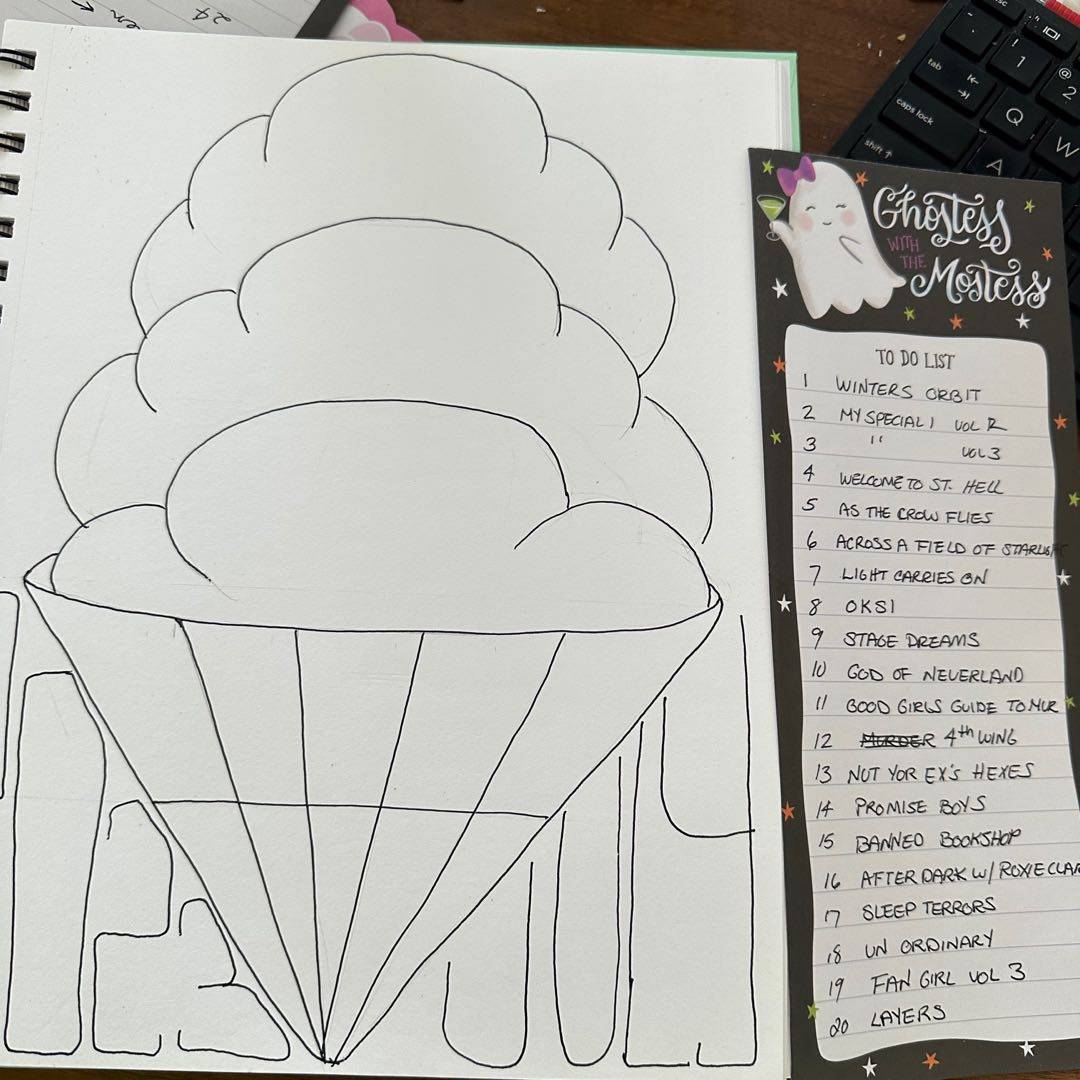 24
caps lock
tab
shift
esc
!
1
@
2
Q
W
A
Ghostess
WITH
THE
Mostess
TO DO LIST
1 WINTERS ORBIT
2 MY SPECIAL 1 VOL 2
3 " VOL 3
4 WELCOME TO ST. HELL
5 AS THE CROW FLIES
6 ACROSS A FIELD OF STARLIGHT
7 LIGHT CARRIES ON
8 OKSI
9 STAGE DREAMS
10 GOD OF NEVERLAND
11 GOOD GIRLS GUIDE TO MUR
12 MURDER 4th WING
13 NOT YOR EX'S HEXES
14 PROMISE BOYS
15 BANNED BOOKSHOP
16 AFTER DARK W/ ROXIE CLAR
17 SLEEP TERRORS
18 UN ORDINARY
19 FAN GIRL VOL 3
20 LAYERS